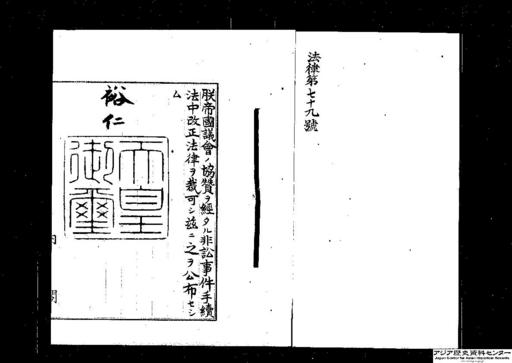 法律第七十九號
朕帝國議會ノ協贊ヲ經タル非訟事件手續
法中改正法律ヲ裁可シ茲ニ之ヲ公布セシ
ム
裕仁
天皇
御璽
アジア歴史資料センター
Japan Center for Asian Historical Records